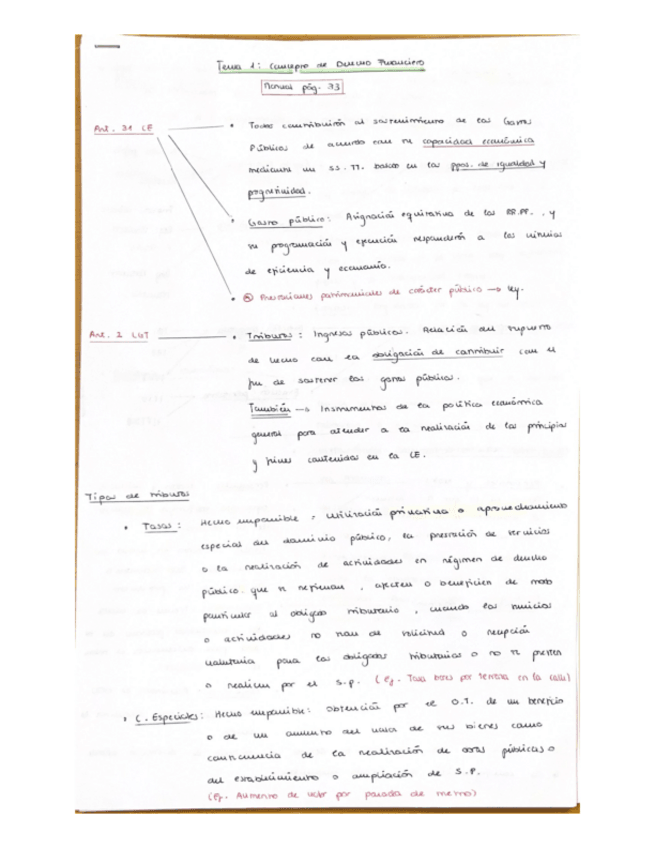 Tema 1: Concepto de Derecho Financiero
Manual pág. 33
Art. 31 CE
• Todos contribuirán al sostenimiento de los Gastos
Públicos de acuerdo con su capacidad económica
mediante un SS.TT. basado en los ppos. de igualdad y
progresividad.
• Gasto público: Asignación equitativa de los RR.PP., y
su programación y ejecución responderán a los criterios
de eficiencia y economía.
• Prestaciones patrimoniales de carácter público → ley.
Art. 2 LGT
• Tributos: Ingresos públicos. Relación del supuesto
de hecho con la obligación de contribuir con el
fin de sostener los gastos públicos.
También → Instrumentos de la política económica
general para atender a la realización de los principios
y fines contenidos en la CE.
Tipos de tributos
• Tasas: Hecho imponible: utilización privativa o aprovechamiento
especial del dominio público, la prestación de servicios
o la realización de actividades en régimen de derecho
público que se refieran, afecten o beneficien de modo
particular al obligado tributario, cuando los servicios
o actividades no sean de solicitud o recepción
voluntaria para los obligados tributarios o no se presten
o realicen por el S.P. (Ej. Tasa bares por terraza en la calle)
• C. Especiales: Hecho imponible: obtención por el O.T. de un beneficio
o de un aumento del valor de sus bienes como
consecuencia de la realización de obras públicas o
del establecimiento o ampliación de S.P.
(Ej. Aumento de valor por parada de metro)